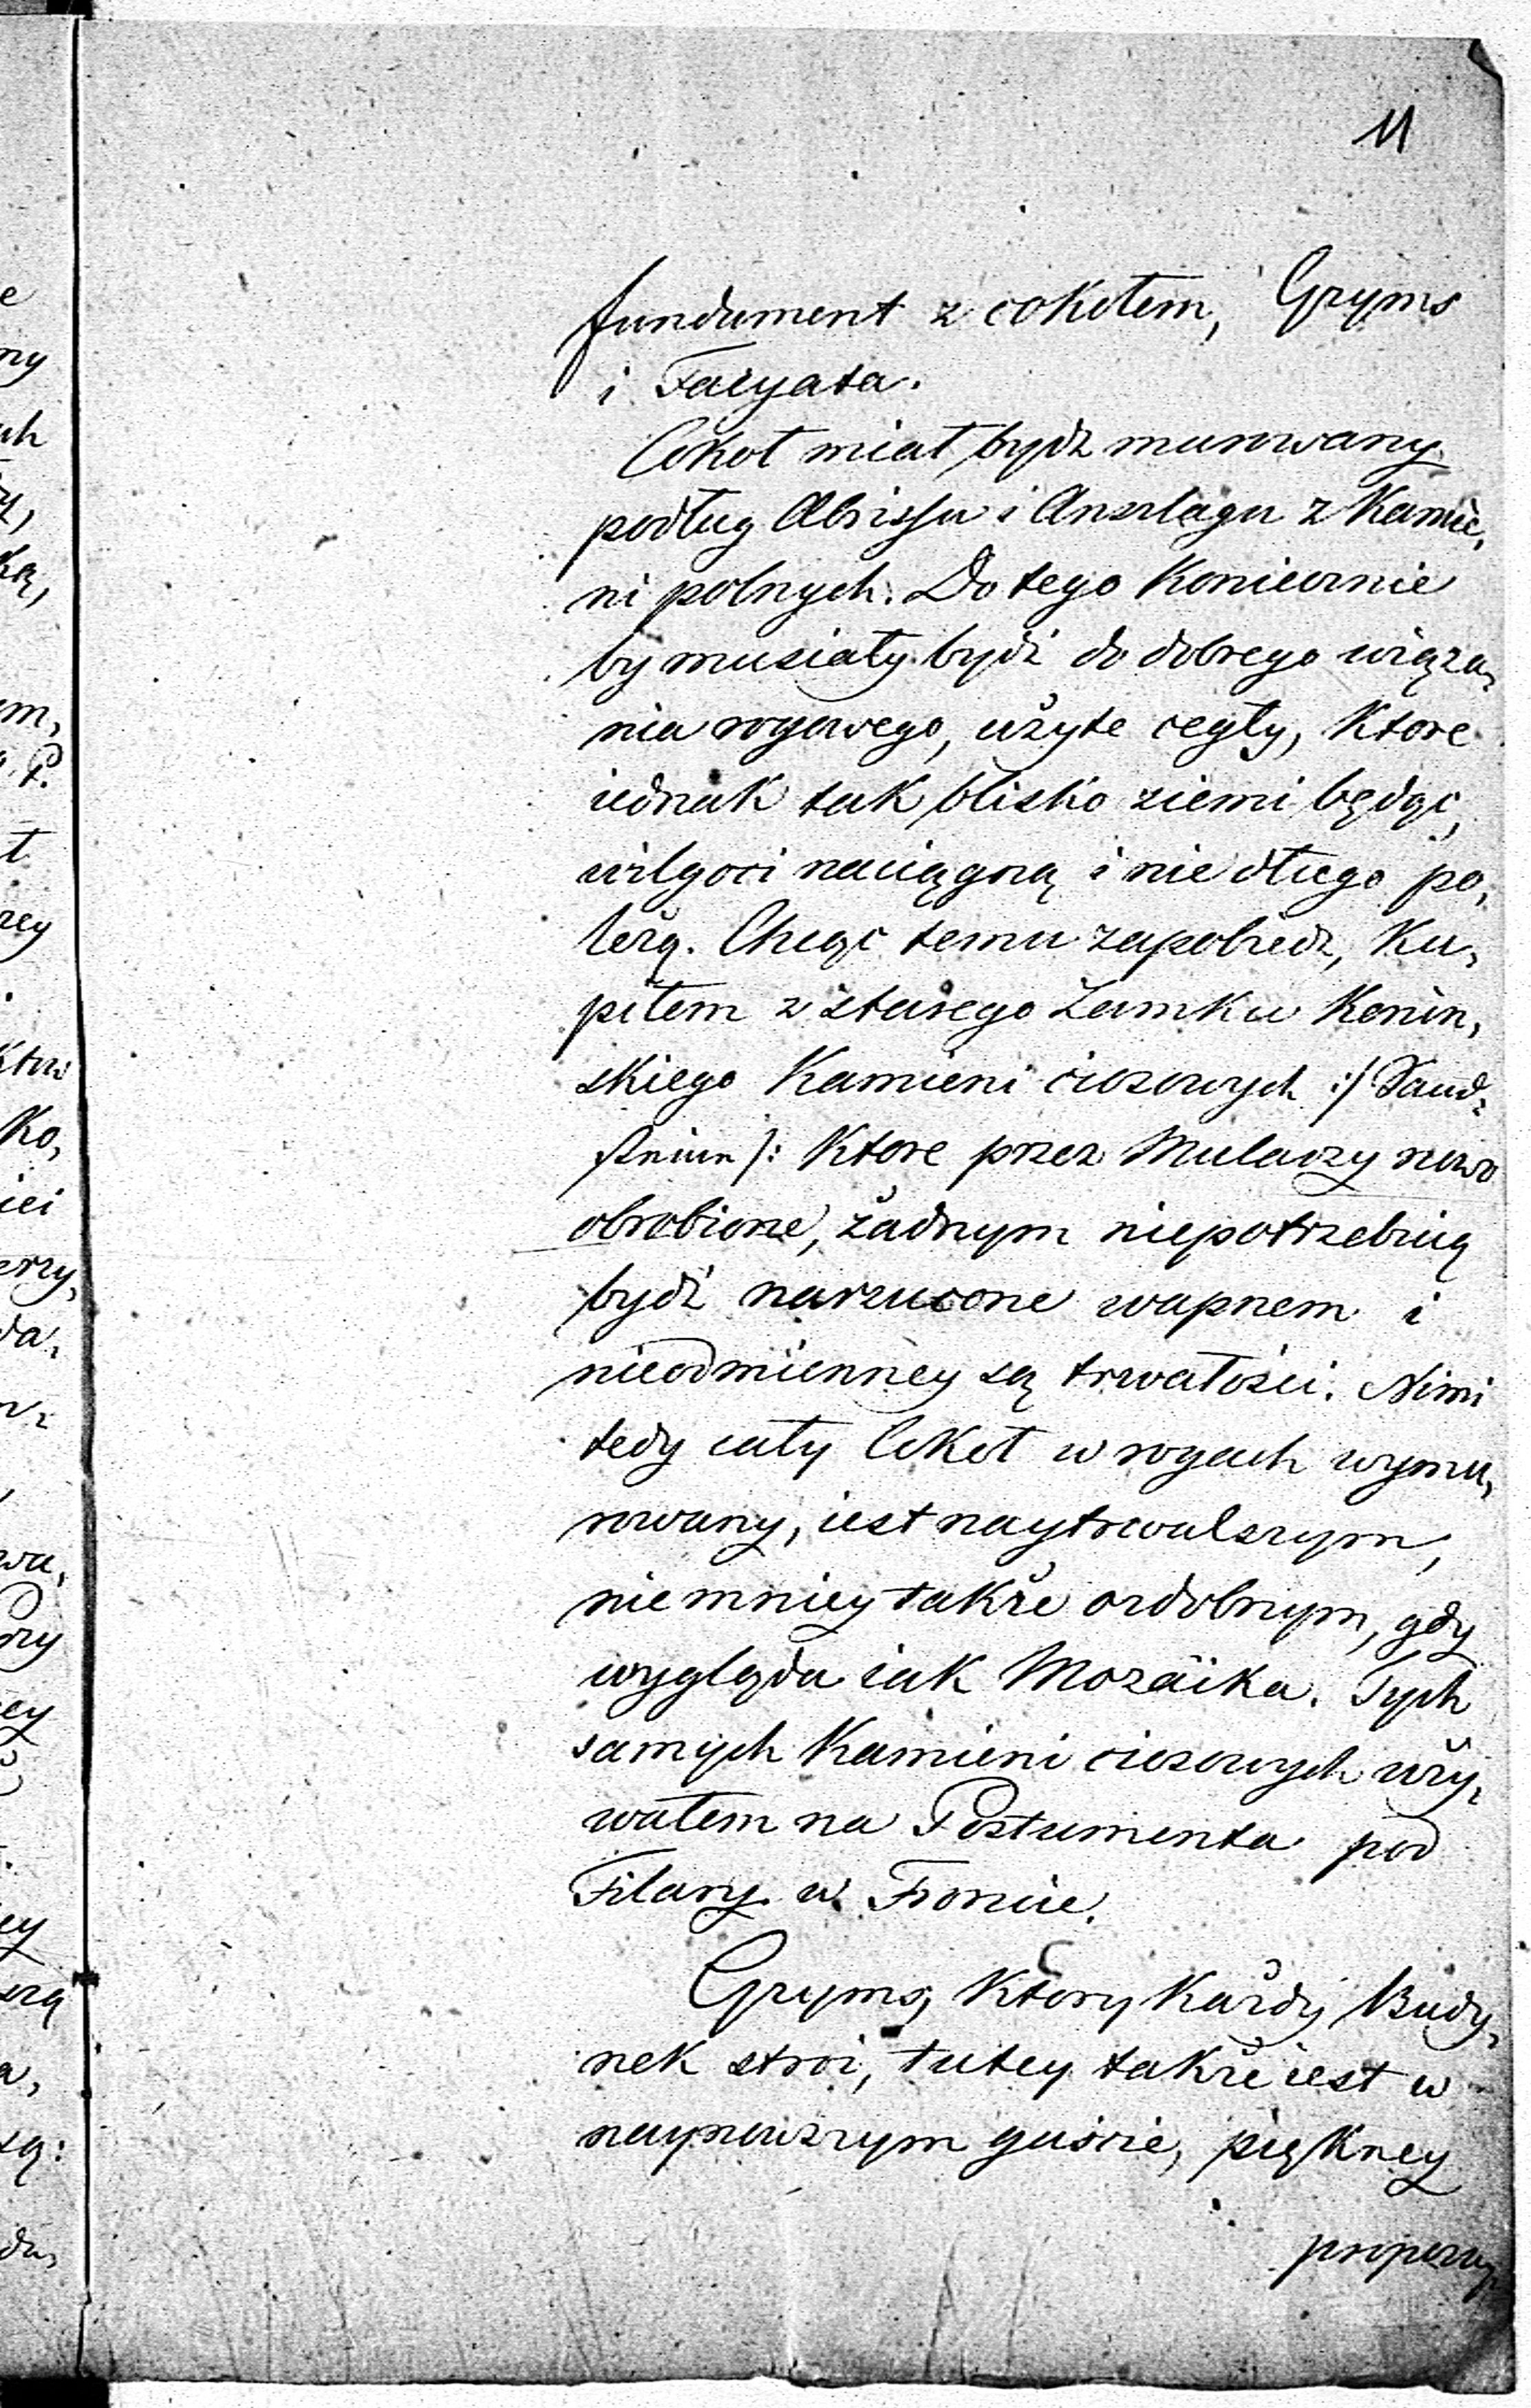 11
fundament z cokołem, Gryms
i Facyata.
Cokoł miał bydz murowany
podług Abrissu i Anszlagu z Kamie,
ni polnych. Do tego Koniecznie
by musiały bydź do dobrego wiąza,
nia rogowego, użyte cegły, Ktore
iednak tak blisko ziemi będąc,
wilgoci naciągną i nie długo po,
leżą. Chcąc temu zapobiedz, Ku,
piłem z starego Zamku Konin,
skiego Kamieni ciosowych :/ Sand,
steinen /: Ktore przez Mularzy nowo
obrobione, żadnym niepotrzebuią
bydź narzucone wapnem i
nieodmienney są trwałości. Nimi
tedy cały Cokoł w rogach wymu,
rowany, iest naytrwalszym,
niemniey także ozdobnym, gdy
wygląda iak Mozäika. Tych
samych Kamieni ciosowych uży,
wałem na Postumenta pod
Filary w Froncie.
Gryms, Ktory Każdy Budy,
nek stroi, tutey także iest w
naynowszym guście, piękney
proporcy,
e
ny
m,
P.
ł
rey
Ko,
iei
erzy,
da,
wa,
ey